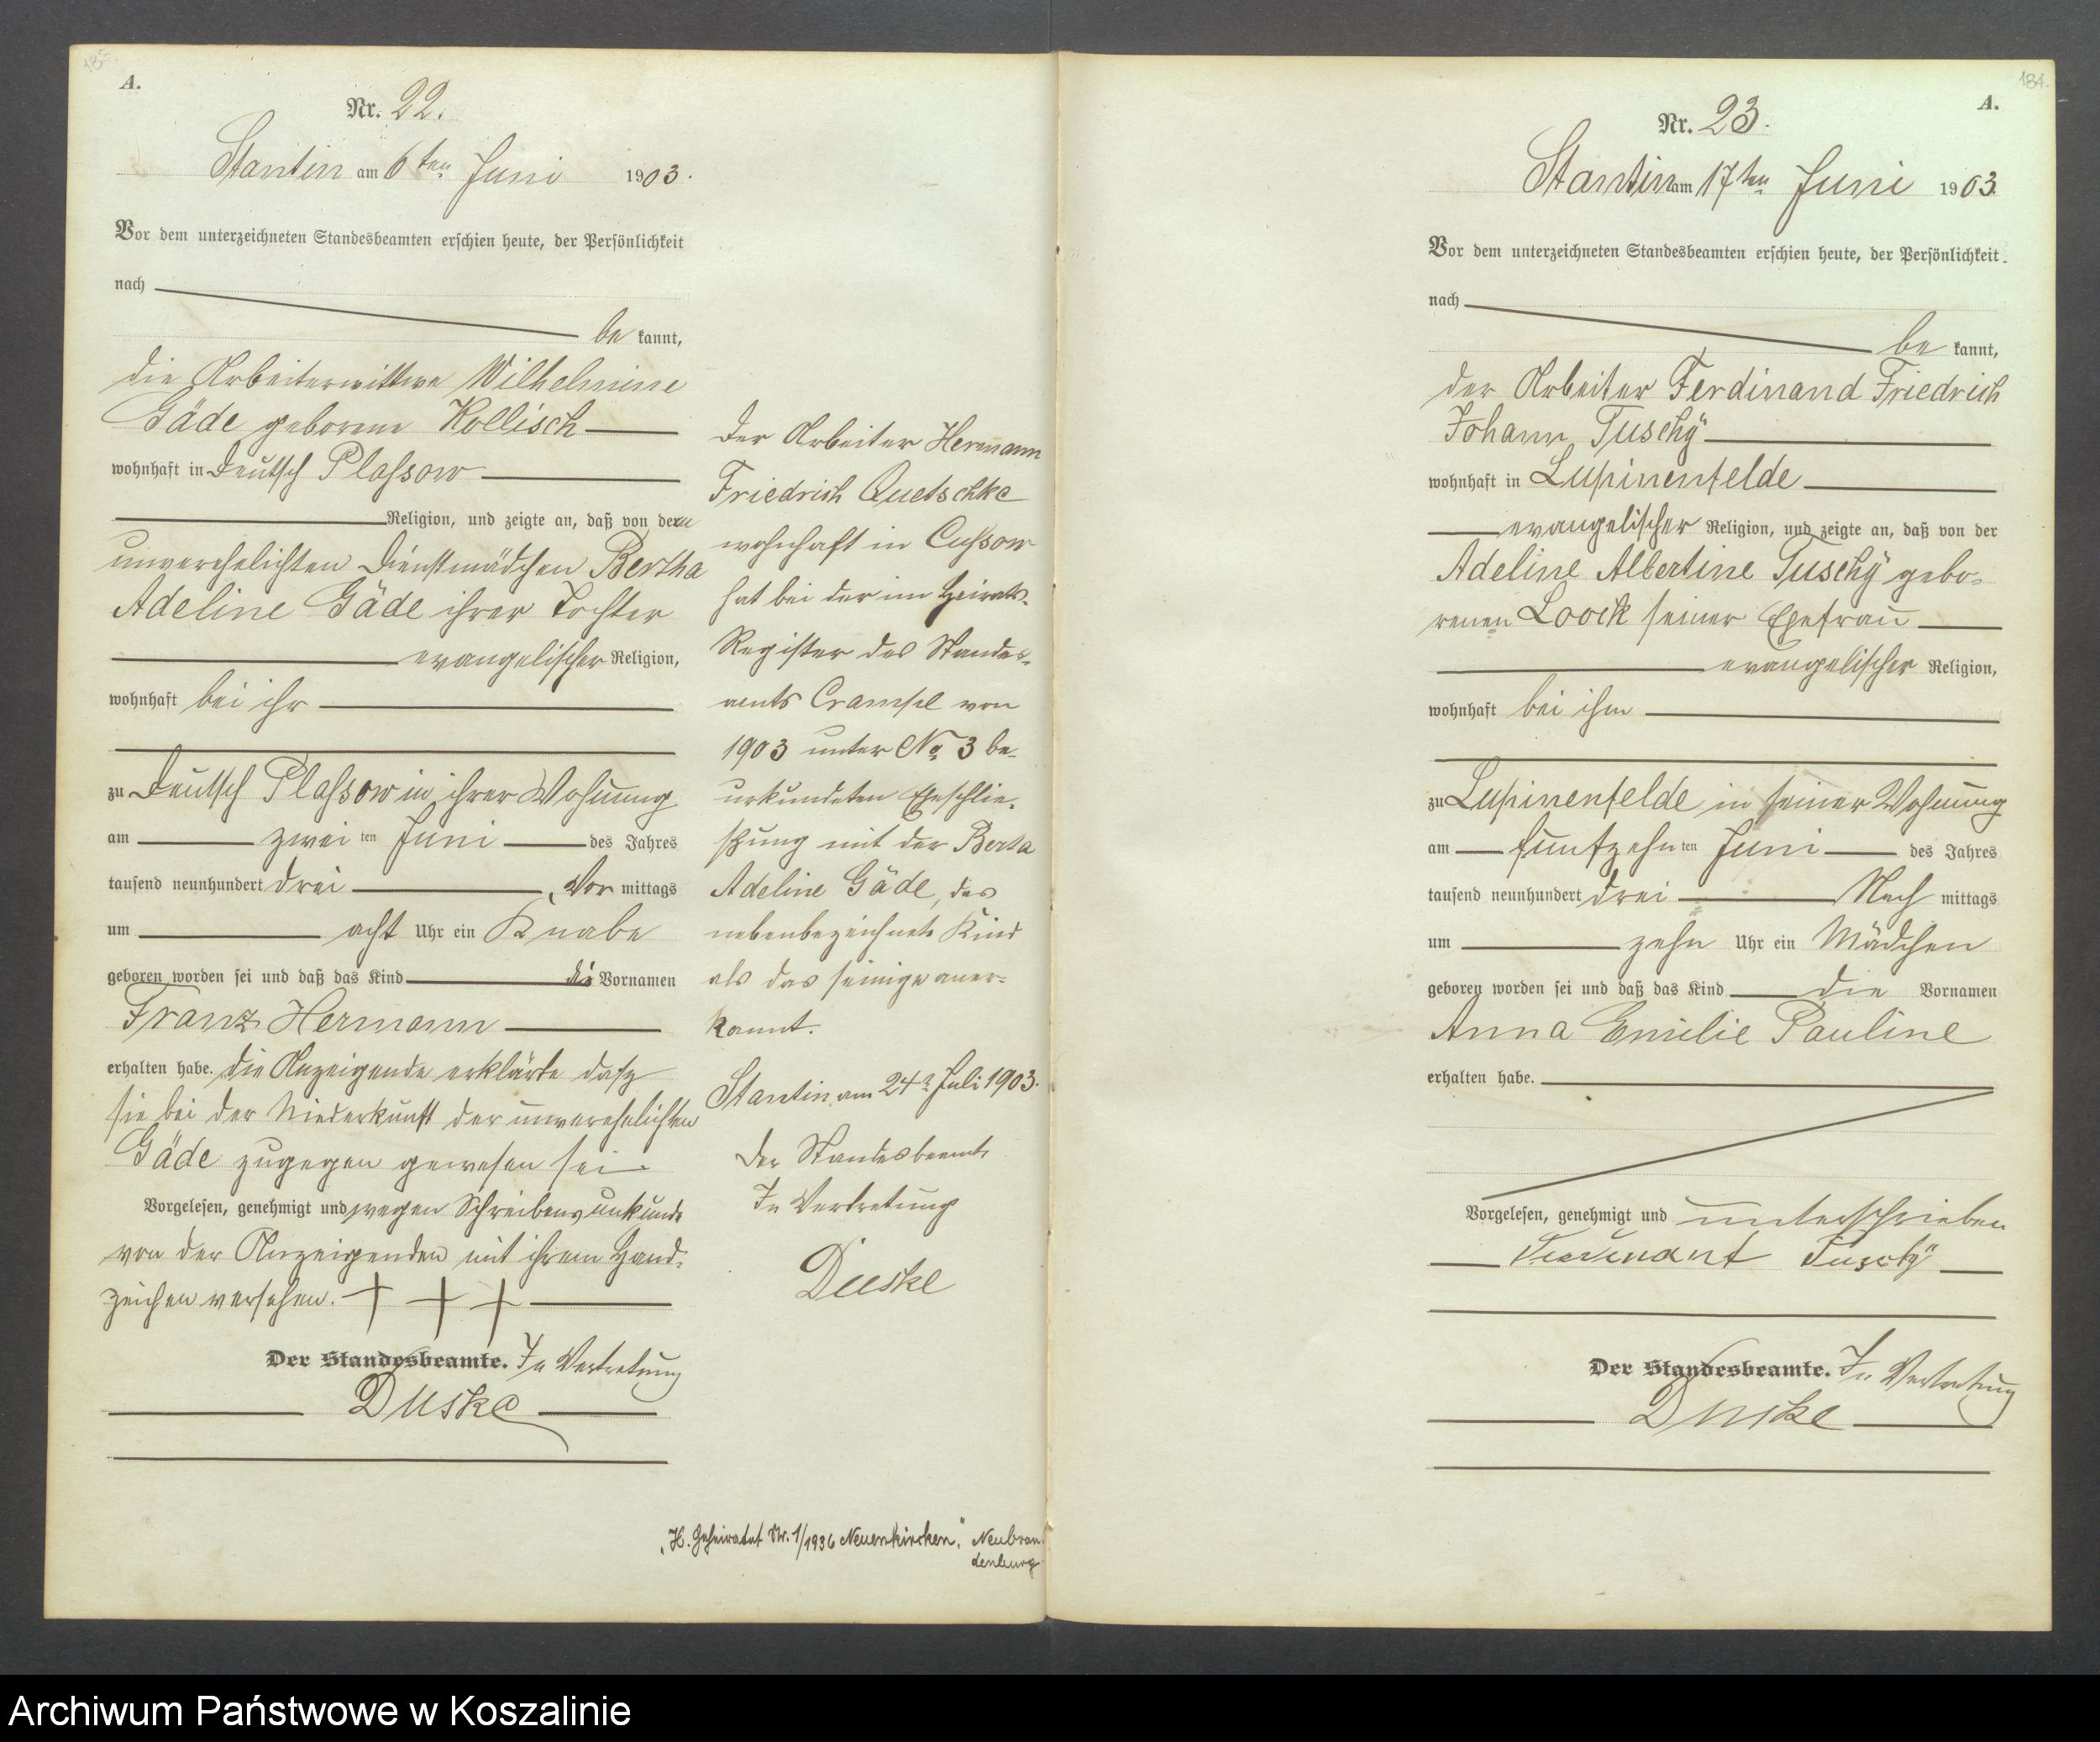 A.
Nr. 22.
Stantin am 6ten Juni 1903.
Vor dem unterzeichneten Standesbeamten erschien heute, der Persönlichkeit
nach
be kannt,
die Arbeiterwittwe Wilhelmine
Gäde geborene Kollisch
wohnhaft in Deutsch Plaßow
Religion, und zeigte an, daß von der
unverehelichten Dienstmädchen Bertha
Adeline Gäde ihrer Tochter
evangelischer Religion,
wohnhaft bei ihr
zu Deutsch Plaßow in ihrer Wohnung
am zwei ten Juni des Jahres
tausend neunhundert drei Vor mittags
um acht Uhr ein Knabe
geboren worden sei und daß das Kind die Vornamen
Franz Hermann
erhalten habe. Die Anzeigende erklärte daß
sie bei der Niederkunft der unverehelichten
Gäde zugegen gewesen sei.
Vorgelesen, genehmigt und wegen Schreibensunkunde
von der Anzeigenden mit ihrem Hand-
zeichen versehen. + + +
Der Standesbeamte. In Vertretung
Duske
Der Arbeiter Hermann
Friedrich Quetschke
wohnhaft in Cußow
hat bei der im Heirats-
Register des Standes-
amts Crampe von
1903 unter No 3 be-
urkundeten Eheschlie-
ßung mit der Berta
Adeline Gäde, das
nebenbezeichnete Kind
als das seinige aner-
kannt.
Stantin am 24 Juli 1903.
Der Standesbeamte
In Vertretung
Duske
"H. Geheiratet Nr. 1/1936 Neuenkirchen," Neubran-
denburg
184
A.
Nr. 23.
Stantin am 17ten Juni 1903.
Vor dem unterzeichneten Standesbeamten erschien heute, der Persönlichkeit
nach
be kannt,
der Arbeiter Ferdinand Friedrich
Johann Tuschÿ
wohnhaft in Lupinenfelde
evangelischer Religion, und zeigte an, daß von der
Adeline Albertine Tuschÿ gebo-
renen Loock seiner Ehefrau
evangelischer Religion,
wohnhaft bei ihm
zu Lupinenfelde in seiner Wohnung
am fünfzehn ten Juni des Jahres
tausend neunhundert drei Nach mittags
um zehn Uhr ein Mädchen
geboren worden sei und daß das Kind die Vornamen
Anna Emilie Pauline
erhalten habe.
Vorgelesen, genehmigt und unterschrieben
Ferdinant Tuschÿ
Der Standesbeamte. In Vertretung
Duske
Archiwum Państwowe w Koszalinie